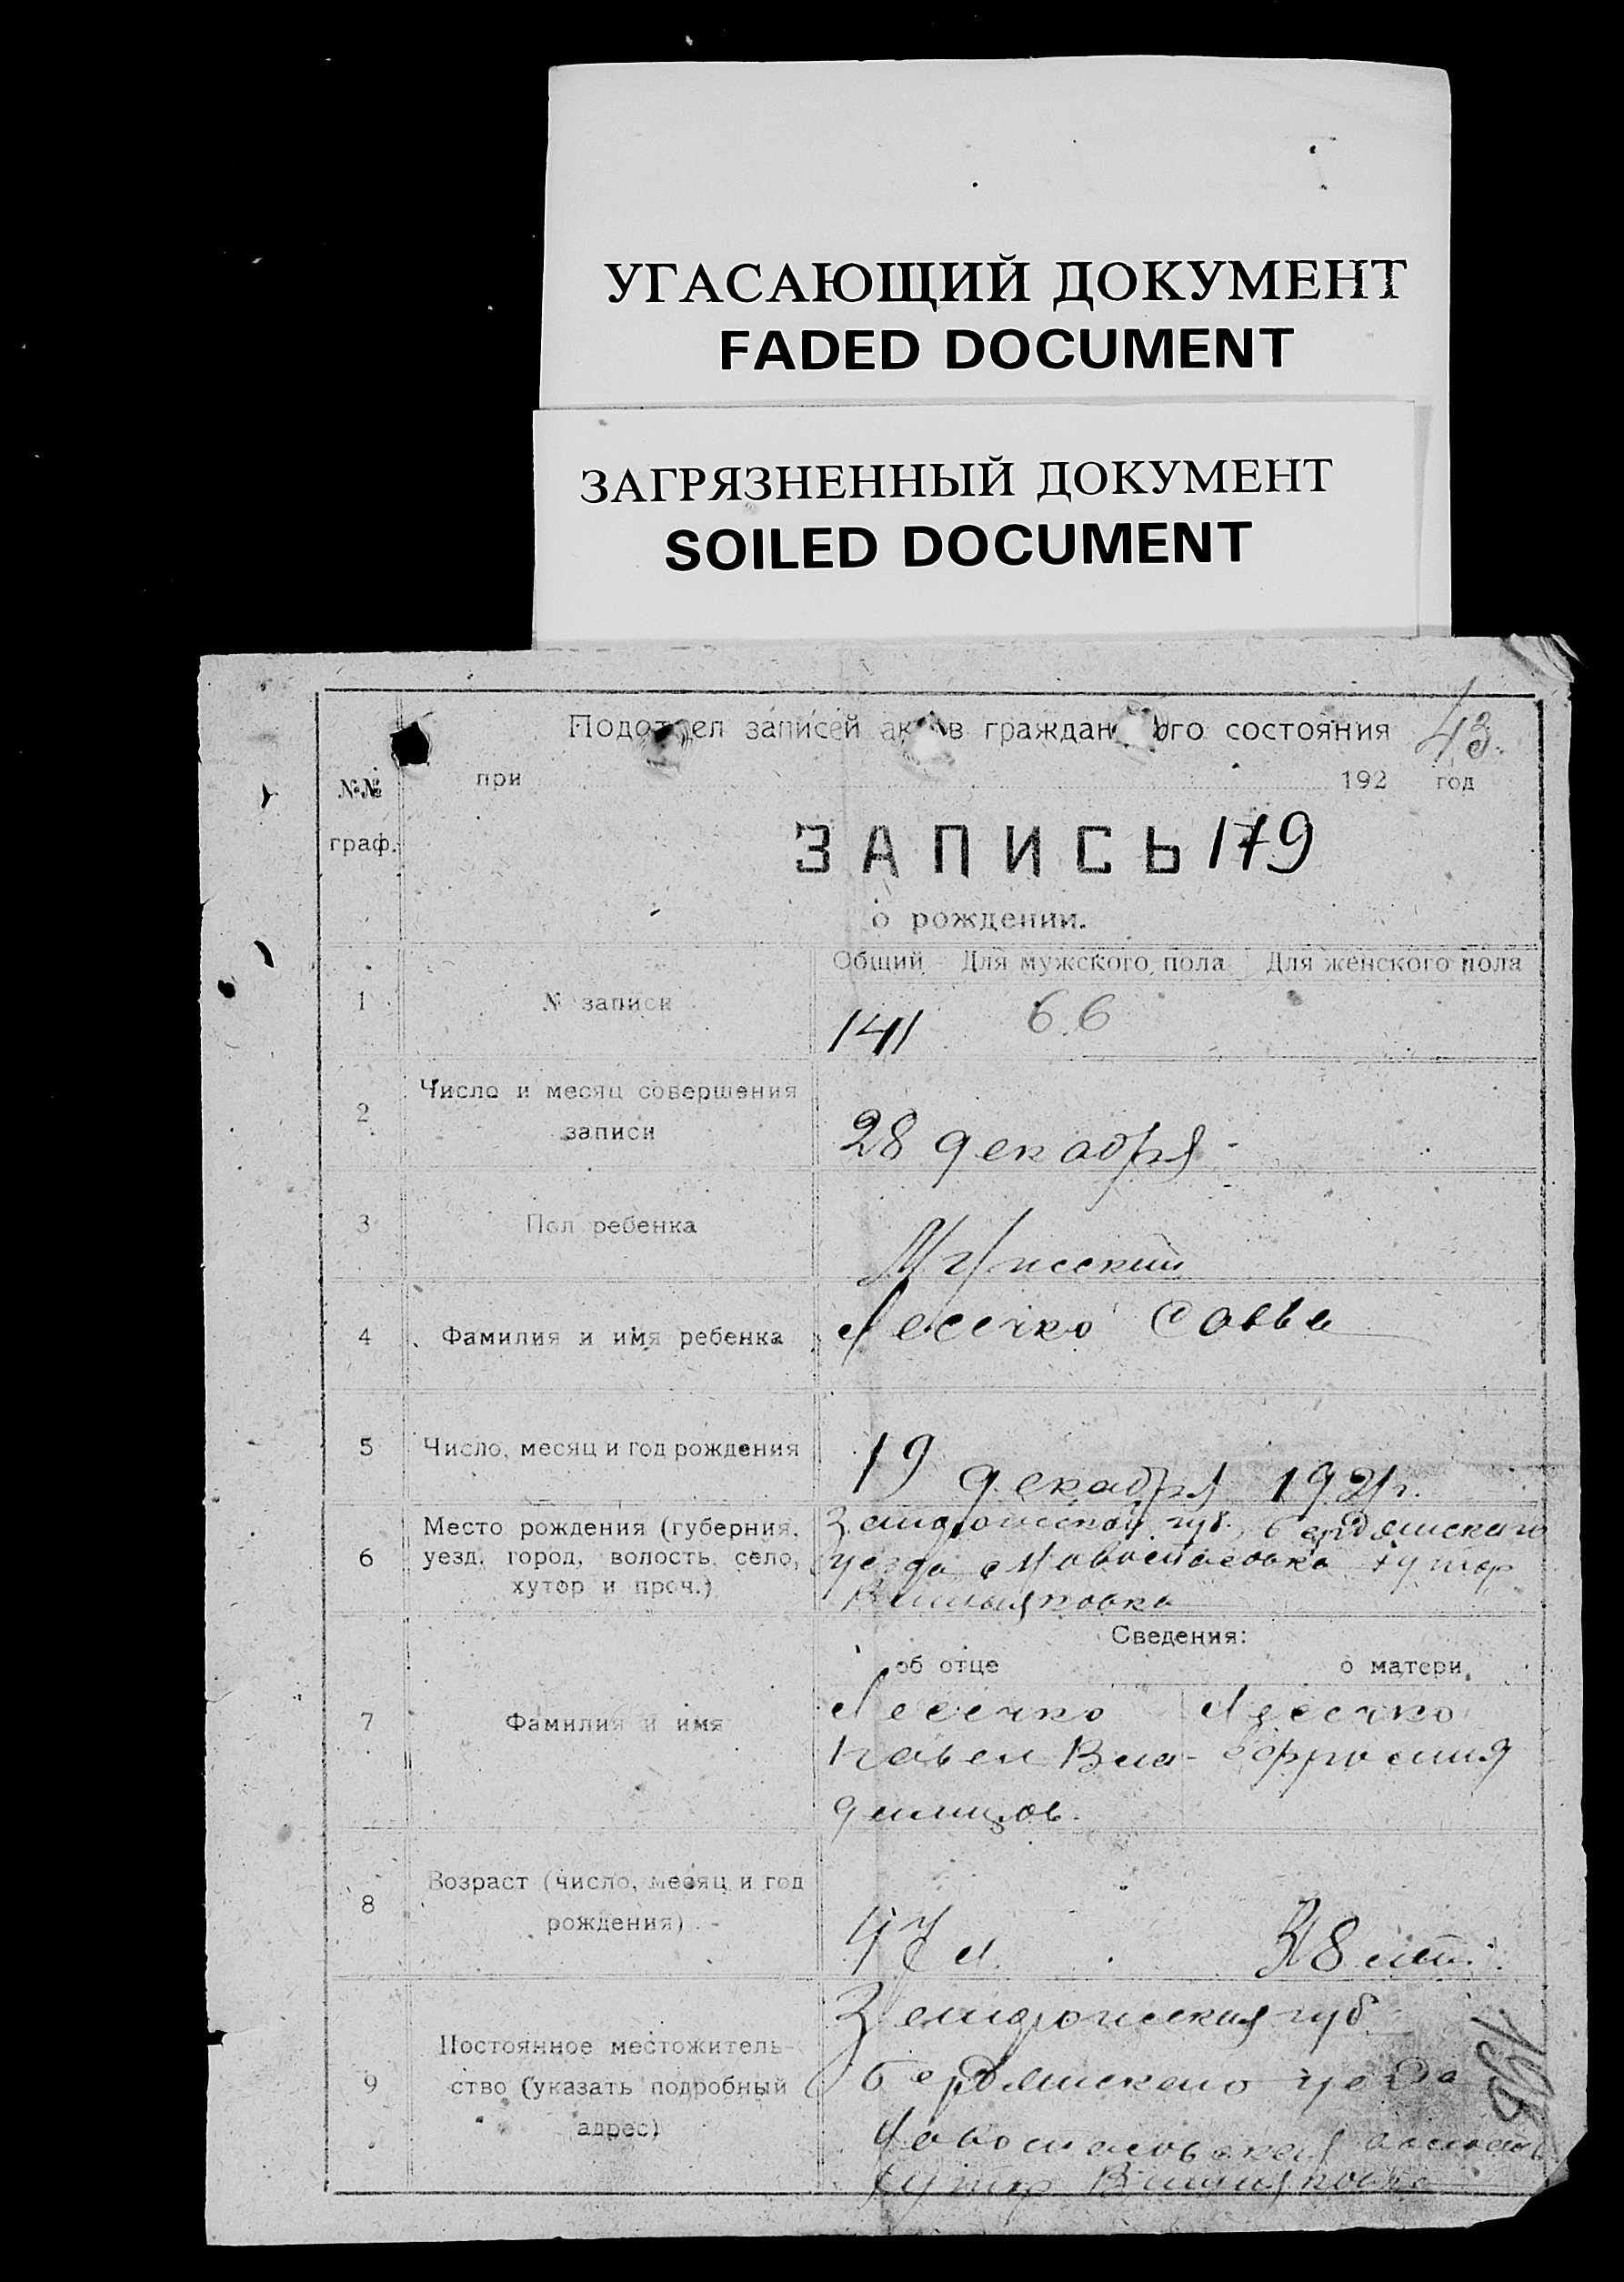 УГАСАЮЩИЙ ДОКУМЕНТ
FADED DOCUMENT
ЗАГРЯЗНЕННЫЙ ДОКУМЕНТ
SOILED DOCUMENT
Подотдел записей актов гражданского состояния 43.
№№ при 192 год
граф.
ЗАПИСЬ 179
о рождении.
Общий Для мужского пола Для женского пола
1 № записи 141 66
2 Число и месяц совершения
записи 28 декабря
3 Пол ребенка Мужеский
4 Фамилия и имя ребенка Лесечко Савва
5 Число, месяц и год рождения 19 декабря 1921г.
6 Место рождения (губерния,
уезд, город, волость, село,
хутор и проч.)
губ. Бердянскаго
уезда Новоспасовка хутор
Сведения:
об отце о матери
7 Фамилия и имя Лесечко Лесечко
Павел Вла- Ефросиния
димиров.
8 Возраст (число, месяц и год
рождения) 47 л. 38 лет.
9 Постоянное местожитель-
ство (указать подробный
адрес)
губ
Бердянскаго уезда
Новоспасовская волость
хутор
195